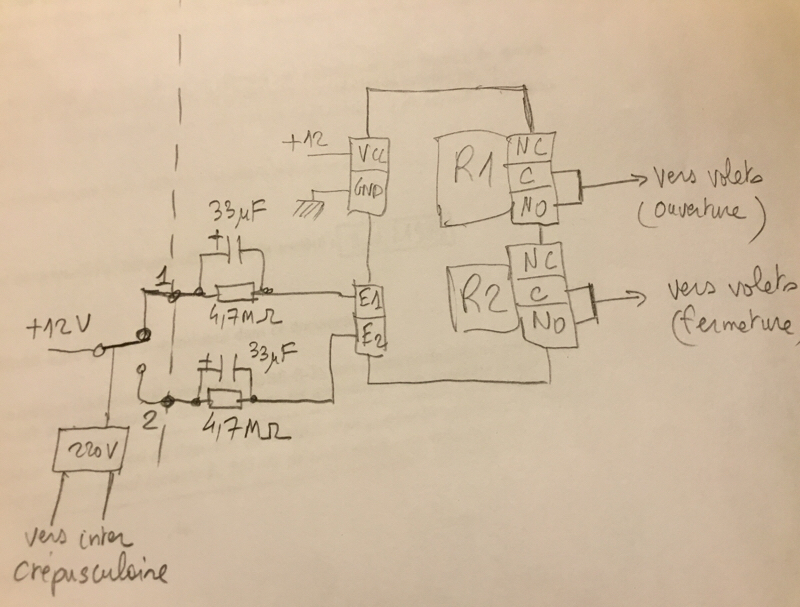 +12
VCC
GND
R1
NC
C
NO
vers volets
(ouverture)
33µF
+
1
4,7MΩ
E1
E2
R2
NC
C
NO
vers volets
(fermeture)
+12V
+
33µF
2
4,7MΩ
220V
vers inter
crépusculaire